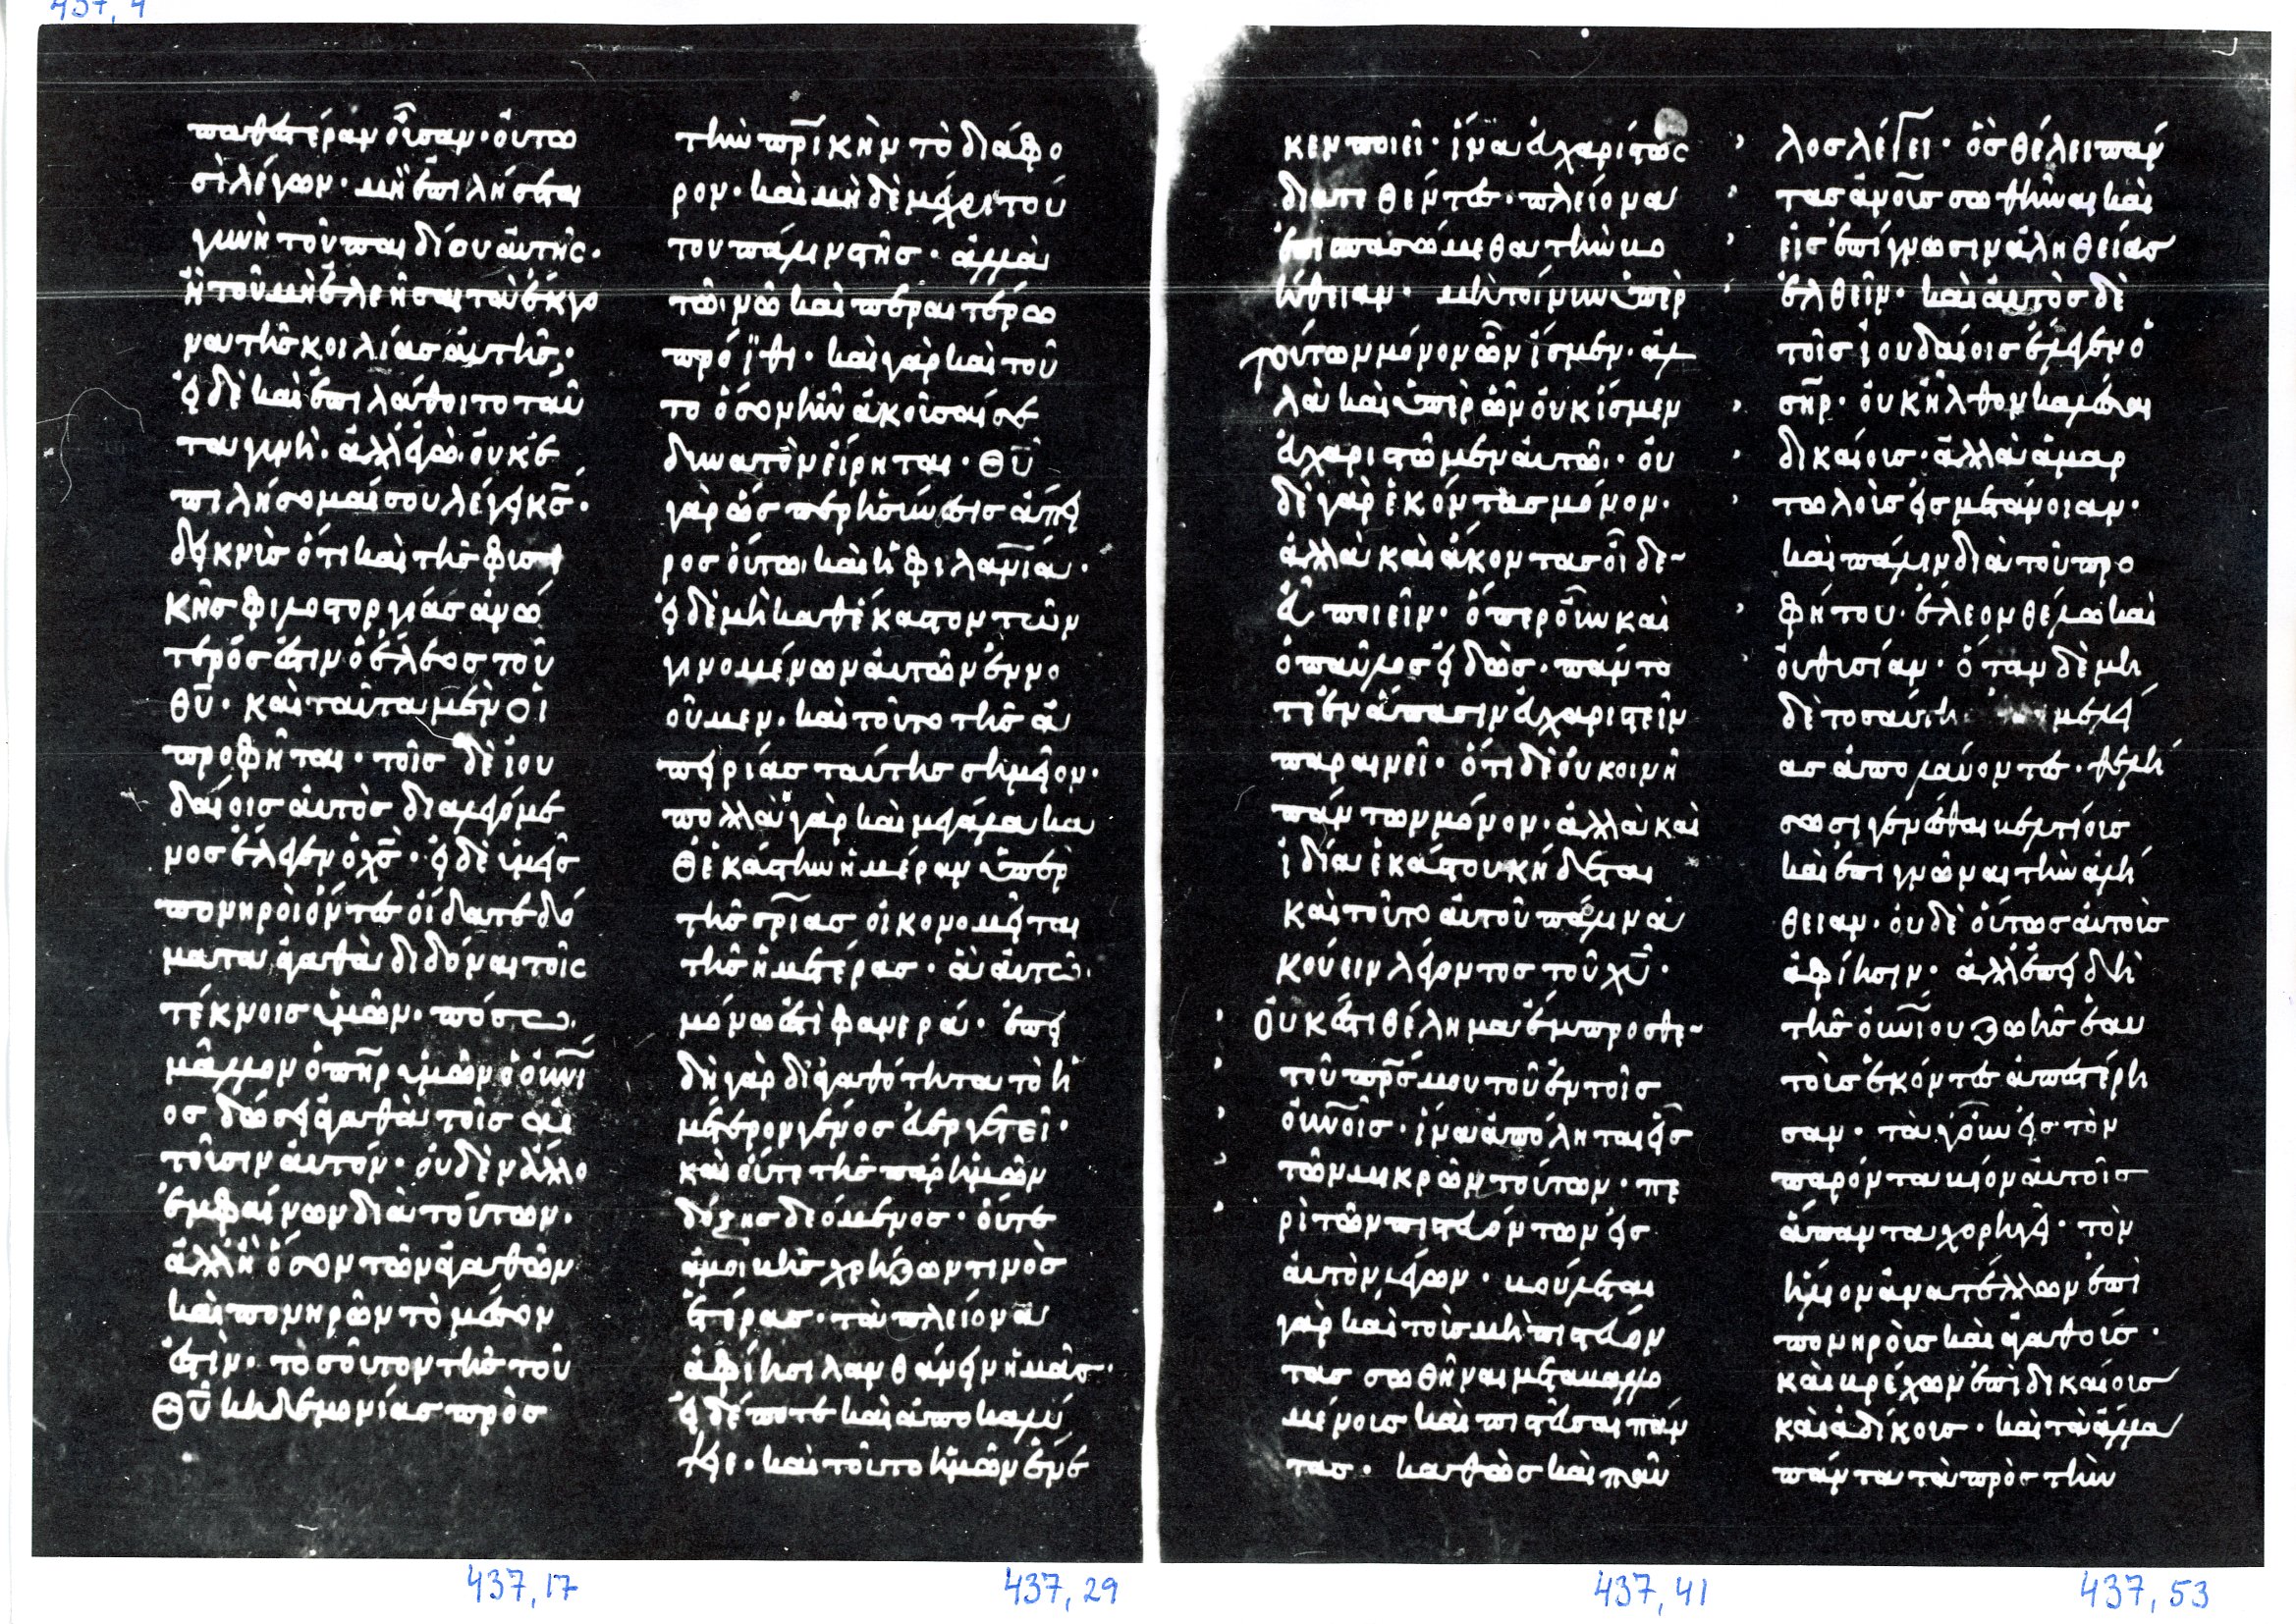 437, 4
παθεστέραν οὖσαν· οὕτω
σὶ λέγων· μὴ ἐπιλήσεται
γυνὴ τοῦ παιδίου αὐτῆς·
ἢ τοῦ μὴ ἐλεῆσαι τὰ ἔκγο
να τῆς κοιλίας αὐτῆς;
εἰ δὲ καὶ ἐπιλάθοιτο ταῦ
τα γυνή· ἀλλ' ἐγὼ οὐκ ἐ
πιλήσομαί σου λέγει κς̅·
δεικνὺς ὅτι καὶ τῆς φυσι
κῆς φιλοστοργίας ἀνω
τερός ἐστιν ὁ ἔλεος τοῦ
θυ̅· καὶ ταῦτα μὲν οἱ
προφῆται· τοῖς δὲ ἰου
δαίοις αὐτὸς διαλεγόμε
νος ἔλεγεν ὁ χς̅· εἰ δὲ ὑμεῖς
πονηροὶ ὄντες οἴδατε δό
ματα ἀγαθὰ διδόναι τοῖς
τέκνοις ὑμῶν· πόσω
μᾶλλον ὁ πηρ̅ ὑμῶν ὁ οὐνι̅
ος δώσει ἀγαθὰ τοῖς αἰ
τοῦσιν αὐτόν· οὐδὲν ἄλλο
ἐμφαίνων διὰ τούτων·
ἀλλ' ἢ ὅσον τῶν ἀγαθῶν
καὶ πονηρῶν τὸ μέσον
ἐστίν· τοσοῦτον τῆς τοῦ
θυ̅ κηδεμονίας πρὸς
τὴν πρι̅κὴν τὸ διάφο
ρον· καὶ μηδὲ μέχρι τού
του πάλιν στῆς· ἀλλὰ
τῶ νῶ καὶ περαιτέρω
πρόϊθι· καὶ γὰρ καὶ τοῦ
το ὅσον ἦν ἀκοῦσαί σε
δυνατὸν εἴρηται· θυ̅
γὰρ ὥσπερ ἡ σύνεσις ἄπει
ρος οὕτω καὶ ἡ φιλανι̅α·
εἰ δὲ μὴ καθέκαστον τῶν
γινομένων αὐτῶν ἐννο
οῦμεν· καὶ τοῦτο τῆς ἀ
πειρίας ταύτης σημεῖον·
πολλὰ γὰρ καὶ μεγάλα κα
θεκάστην ἡμέραν ὑπὲρ
τῆς σρι̅ας οἰκονομεῖται
τῆς ἡμετέρας· ἃ αὐτῶ
μόνω ἐστὶ φανερά· ἐπει
δὴ γὰρ δι' ἀγαθότητα τὸ ἡ
μέτερον γένος εὐεργετεῖ·
καὶ οὔτε τῆς παρ' ἡμῶν
δόξης δεόμενος· οὔτε
ἀμοιβῆς χρήζων τινὸς
ἑτέρας· τὰ πλείονα
ἀφίησι λανθάνειν ἡμᾶς·
εἰ δέ ποτε καὶ ἀποκαλύ
πτει· καὶ τοῦτο ἡμῶν ἕνε
κεν ποιεῖ· ἵνα εὐχαρίστως
διατεθέντες· πλείονα
ἐπισπασώμεθα τὴν βο
ήθειαν· μὴ τοίνυν ὑπὲρ
τούτων μόνον ὧν ἴσμεν· ἀλ
λὰ καὶ ὑπὲρ ὧν οὐκ ἴσμεν
εὐχαριστῶμεν αὐτῶ· οὐ
δὲ γὰρ ἑκόντας μόνον·
ἀλλὰ καὶ ἄκοντας οἶδε
εὖ ποιεῖν· ὅπερ οὖν καὶ
ὁ παῦλος εἰδὼς· πάντο
τε ἐν ἅπασιν εὐχαριστεῖν
παραινεῖ· ὅτι δὲ οὐ κοινῆ
πάντων μόνον· ἀλλὰ καὶ
ἰδία ἑκάστου κήδεται
καὶ τοῦτο αὐτοῦ πάλιν ἀ
κούειν λέγοντος τοῦ χυ̅·
Οὐκ ἔστι θέλημα ἔμπροσθε
τοῦ πρς̅ μου τοῦ ἐν τοῖς
οὐνοῖς̅· ἵνα ἀπόληται εἷς
τῶν μικρῶν τούτων· πε
ρὶ τῶν πιστευόντων εἰς
αὐτὸν λέγων· βούλεται
γὰρ καὶ τοὺς μὴ πιστεύον
τας σωθῆναι μεταβαλλο
μένους καὶ πιστεῦσαι πάν
τας· καθὼς καὶ παῦ
λος λέγει· ὃς θέλει πάν
τας ἀνους̅ σωθῆναι καὶ
εἰς ἐπίγνωσιν ἀληθείας
ἐλθεῖν· καὶ αὐτὸς δὲ
τοῖς ἰουδαίοις ἔλεγεν ὁ
σηρ̅· οὐκ ἦλθον καλέσαι
δικαίους· ἀλλὰ ἁμαρ
τωλοὺς εἰς μετάνοιαν·
καὶ πάλιν διὰ τοῦ προ
φήτου· ἔλεον θέλω καὶ
οὐ θυσίαν· ὅταν δὲ μη
δὲ τοσαύτης ἐπιμελεί
ας ἀπολαύοντες· θελή
σωσι γενέσθαι βελτίους
καὶ ἐπιγνῶναι τὴν ἀλή
θειαν· οὐδὲ οὕτως αὐτοὺς
ἀφίησιν· ἀλλ' ἐπειδὴ
τῆς οὐνι̅ου ζωῆς ἑαυ
τοὺς ἑκόντες ἀπεστέρη
σαν· τὰ γοῦν εἰς τὸν
παρόντα βίον αὐτοῖς
ἅπαντα χορηγεῖ· τὸν
ἥλιον ἀνατέλλων ἐπὶ
πονηροὺς καὶ ἀγαθούς·
καὶ βρέχων ἐπὶ δικαίους
καὶ ἀδίκους· καὶ τὰ ἄλλα
πάντα τὰ πρὸς τὴν
437, 17
437, 29
437, 41
437, 53